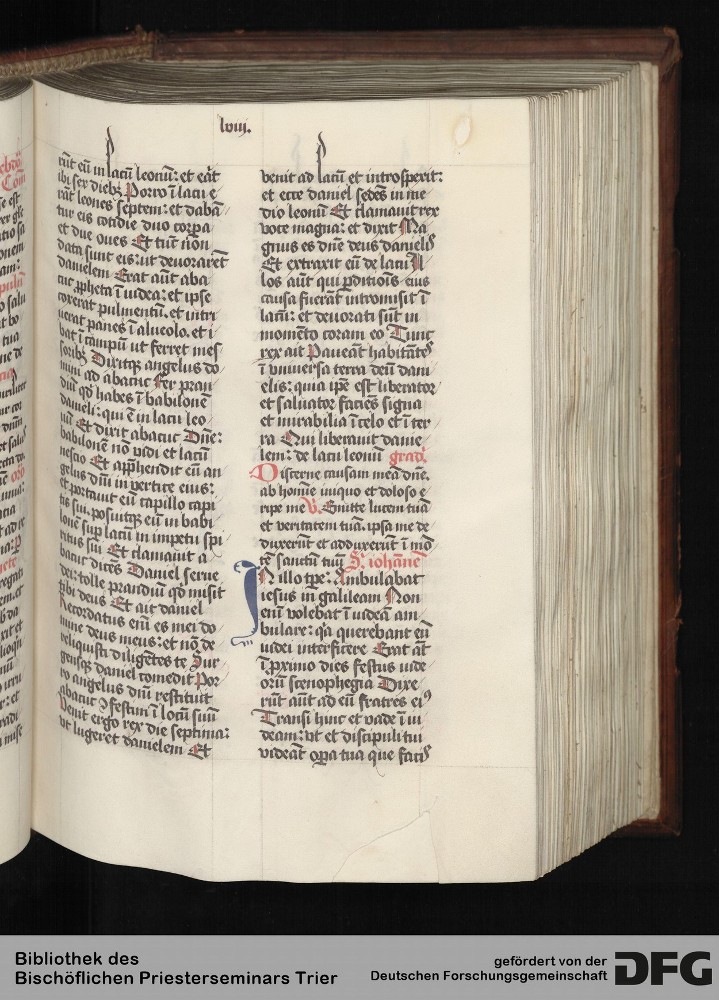 lviij.
rūt eū in lacū leonū: et eāt
ibi sex dieb⁹ Porro ī lacu e
rāt leones septem: et dabā
tur eis cotidie duo corpa
et due oues Et tūc non
data sunt eis: ut deuorarēt
danielem Erat aūt aba
cuc ꝓpheta ī iudea: et ipse
coxerat pulmentū. et intri
uerat panes ī alueolo. et i
bat ī campū ut ferret mes
sorib⁹ Dixitqꝫ angelus do
mini ad abacuc Fer pran
diū qd habes ī babilonē
danieli: qui ē in lacu leo
nū Et dixit abacuc Dn̄e:
babilonē nō vidi et lacū
nescio Et app̄hendit eū an
gelus dn̄i in vertice eius:
et portauit eū capillo capi
tis sui. posuitqꝫ eū in babi
lone sup lacū in impetu spi
ritus sui Et clamauit a
bacuc dicēs Daniel serue
dei: tolle prandiū qd misit
tibi deus Et ait daniel
Recordatus enī es mei do
mine deus meus: et nō de
reliquisti diligētes te Sur
gensqꝫ daniel comedit Por
ro angelus dn̄i restituit
abacuc ꝯfestim ī locū suū
Venit ergo rex die septima:
vt lugeret danielem Et
venit ad lacū et introspexit:
et ecce daniel sedēs in me
dio leonū Et clamauit rex
voce magna: et dixit Ma
gnus es dn̄e deus danielis
Et extraxit eū de lacu Il
los aūt qui ꝑditiōis eius
causa fuerāt intromisit ī
lacū: et deuorati sūt in
momēto coram eo Tunc
rex ait Paueāt habitātes
ī vniuersa terra deū dani
elis: quia ip̄e est liberator
et saluator faciēs signa
et mirabilia ī celo et ī ter
ra Qui liberauit danie
lem: de lacu leonū grad'.
Discerne causam meā dn̄e.
ab homīe iniquo et doloso e
ripe me V. Emitte lucem tuā
et veritatem tuā. ipsa me de
duxerūt et adduxerūt ī mō
tē sanctū tuū S. iohānē
In illo tpe: Ambulabat
iesus in galileam Non
enī volebat ī iudeā am
bulare: q̄a querebant eū
iudei interficere Erat āt
ī ꝓximo dies festus iude
orū scenophegia Dixe
rūt aūt ad eū fratres ei⁹
Transi hinc et vade ī iu
deam: vt et discipuli tui
videāt oꝑa tua que facis
Bibliothek des
Bischöflichen Priesterseminars Trier
gefördert von der
Deutschen Forschungsgemeinschaft
DFG